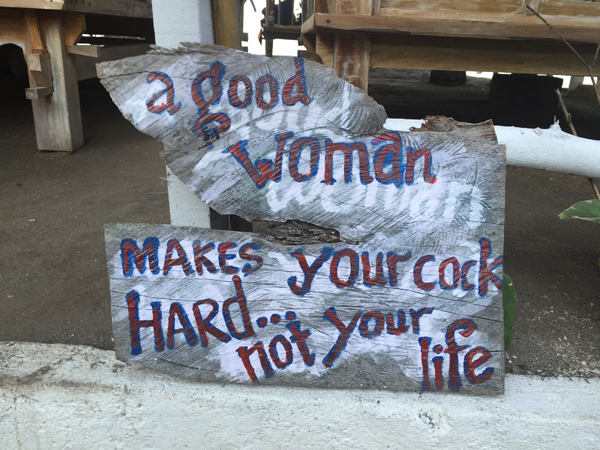 a good
woman
MAKES your cock
HARD...
not your
life